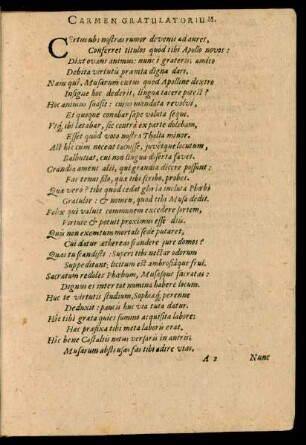 CARMEN GRATULATORIUM.
Certus ubi nostras rumor devenit ad aures,
Conferret titulos quod tibi Apollo novos:
Dixit ovans animus: nunc es grateris amico
Debita virtutis præmia digna dari.
Nam qui, Musarum cœtus quod Apolline dextro
Insigne hoc dederit, lingua tacere potest?
Hoc animus suasit: cujus mandata revolvi,
Et quoque conabar sæpe voluta sequi.
Utque ibi lætabar, sic contrà ex parte dolebam,
Esset quod voto nostra Thalia minor.
Ast hîc cum neceat tacuisse, juvetque locutum,
Balbutiat, cui non lingua diserta favet.
Grandia ament alii, qui grandia dicere possunt:
Fas tenui filo, quæ tibi scribo, probes.
Quæ verò? tibi quod cedat gloria inclyta Phœbi
Gratulor: & nomen, quod tibi Musa dedit.
Felix qui valuit communem excedere sortem,
Virtute & potuit proximus esse diis.
Quis non exemtum mortali sede putaret,
Cui datur æthereas scandere jure domos?
Quas tu scandisti: Superi tibi nectar odorum
Suppeditant: licitum est ambrosiaque frui.
Sacratum redoles Phœbum, Musasque sacratas:
Dignus es inter tot nomina habere locum.
Huc te virtutis studium, Sophiæque perenne
Deduxit: paucis huc via tuta datur.
Hæc tibi grata quies summo acquisita labore:
Hæc præfixa tibi meta laboris erat,
Hîc bene Castaliis notus versaris in antris:
Musarum abstrusas fas tibi adire vias.
A 2 Nunc